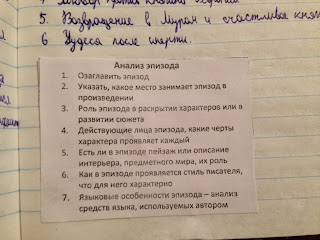 5. Возвращение в Муром и счастливое
6 Чудеса после смерти.
Анализ эпизода
1. Озаглавить эпизод
2. Указать, какое место занимает эпизод в
произведении
3. Роль эпизода в раскрытии характеров или в
развитии сюжета
4. Действующие лица эпизода, какие черты
характера проявляет каждый
5. Есть ли в эпизоде пейзаж или описание
интерьера, предметного мира, их роль
6. Как в эпизоде проявляется стиль писателя,
что для него характерно
7. Языковые особенности эпизода – анализ
средств языка, используемых автором